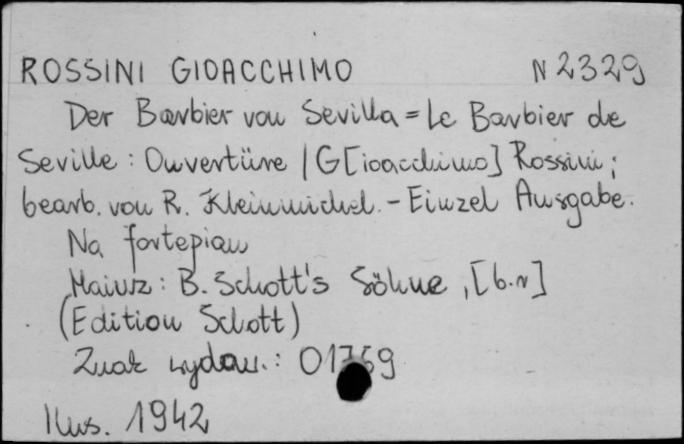 ROSSINI GIOACCHIMO N 2329
Der Barbier von Sevilla = Le Barbier de
Seville : Ouvertüre / G[ioacchimo] Rossini ;
bearb. von R. Kleinmichel. - Einzel Ausgabe.
Na fortepian
Mainz : B. Schott's Söhne , [b.r]
(Edition Schott)
Znak wydaw. : 01769
Nus. 1942